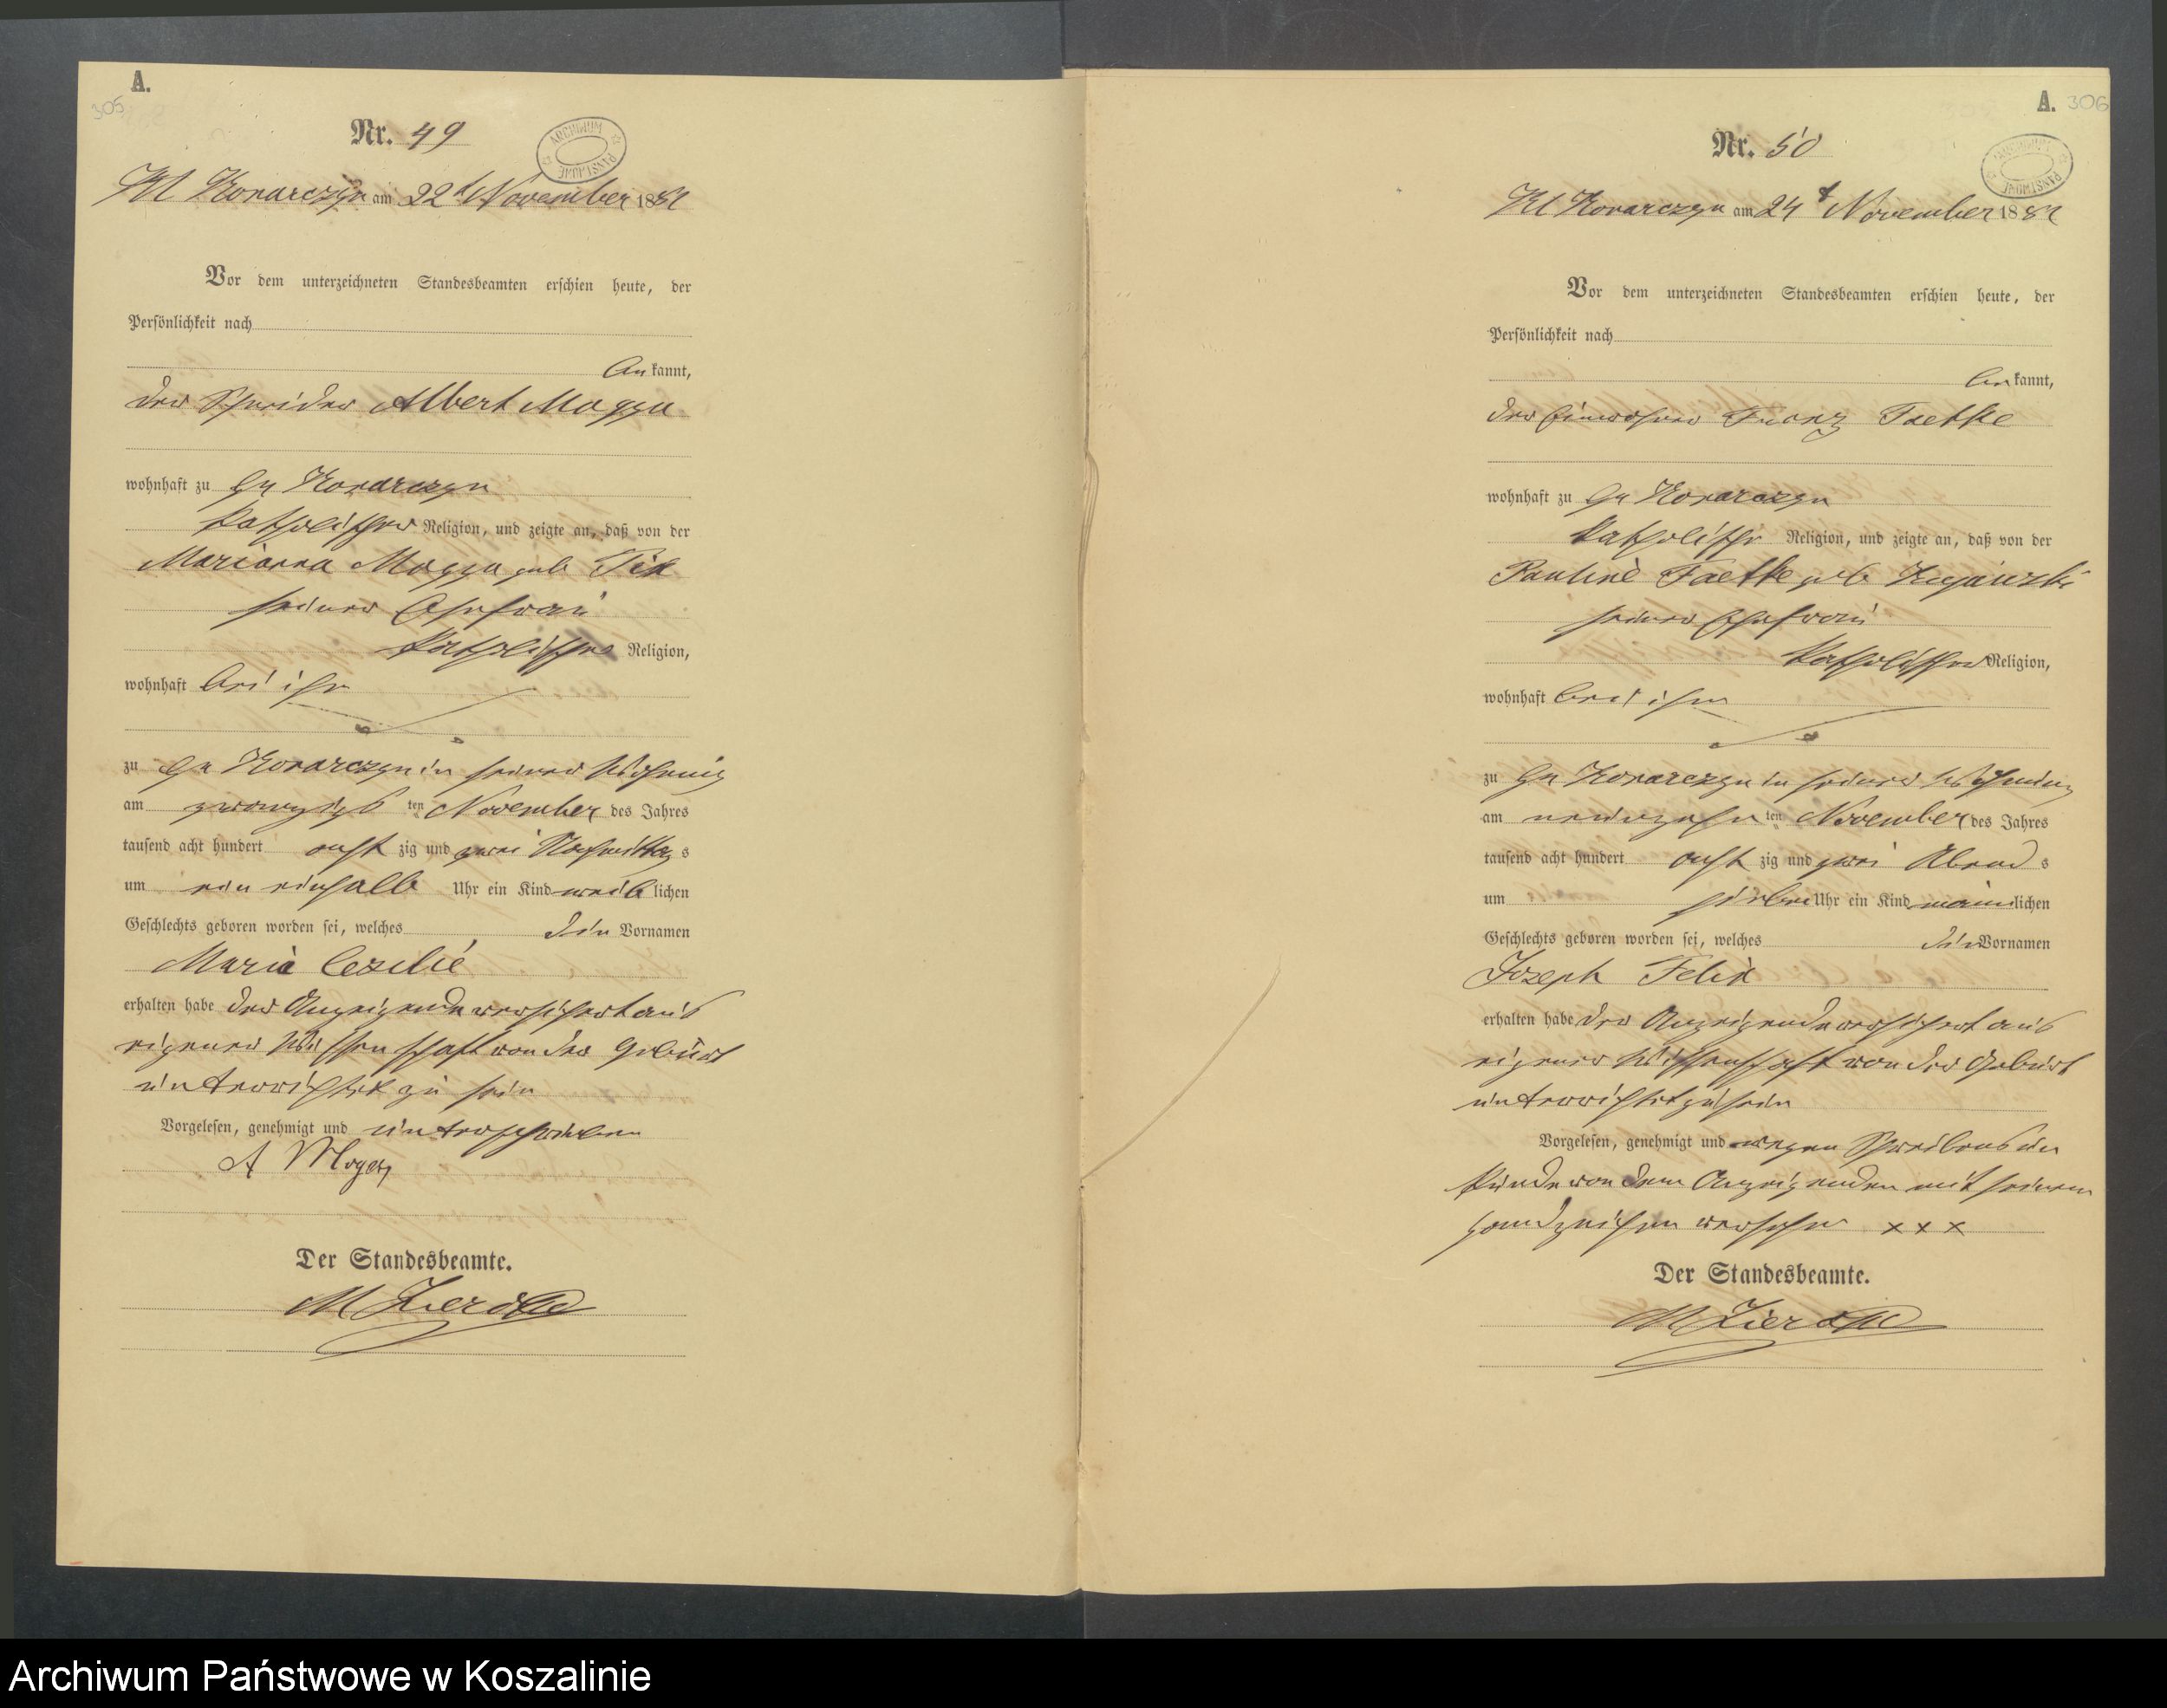 A.
305
Nr. 49
ARCHIWUM PAŃSTWOWE
Kl Konarczyn am 22t November 1882
Vor dem unterzeichneten Standesbeamten erschien heute, der
Persönlichkeit nach
be kannt,
der Schneider Albert
wohnhaft zu Gr Konarczyn
katholischer Religion, und zeigte an, daß von der
Marianna geb
seiner Ehefrau
katholischer Religion,
wohnhaft bei ihm
zu Gr Konarczyn in seiner Wohnung
am zwanzigs ten November des Jahres
tausend acht hundert acht zig und zwei Nachmittag s
um ein einhalb Uhr ein Kind weib lichen
Geschlechts geboren worden sei, welches die Vornamen
Maria Cezilie
erhalten habe der Anzeigende versichert aus
eigener Wissenschaft von der Geburt
unterrichtet zu sein
Vorgelesen, genehmigt und unterschrieben
A
Der Standesbeamte.
M
A. 306
Nr. 50
ARCHIWUM PAŃSTWOWE
Kl Konarczyn am 24t November 1882
Vor dem unterzeichneten Standesbeamten erschien heute, der
Persönlichkeit nach
be kannt,
der Einwohner Franz
wohnhaft zu Gr Konarczyn
katholischer Religion, und zeigte an, daß von der
Pauline geb
seiner Ehefrau
katholischer Religion,
wohnhaft bei ihm
zu Gr Konarczyn in seiner Wohnung
am neunzehn ten November des Jahres
tausend acht hundert acht zig und zwei Abend s
um sieben Uhr ein Kind männlichen
Geschlechts geboren worden sei, welches die Vornamen
Joseph Felix
erhalten habe der Anzeigende versichert aus
eigener Wissenschaft von der Geburt
unterrichtet zu sein
Vorgelesen, genehmigt und wegen Schreibensun
kunde von dem Anzeigenden mit seinem
Handzeichen versehen x x x
Der Standesbeamte.
M
Archiwum Państwowe w Koszalinie